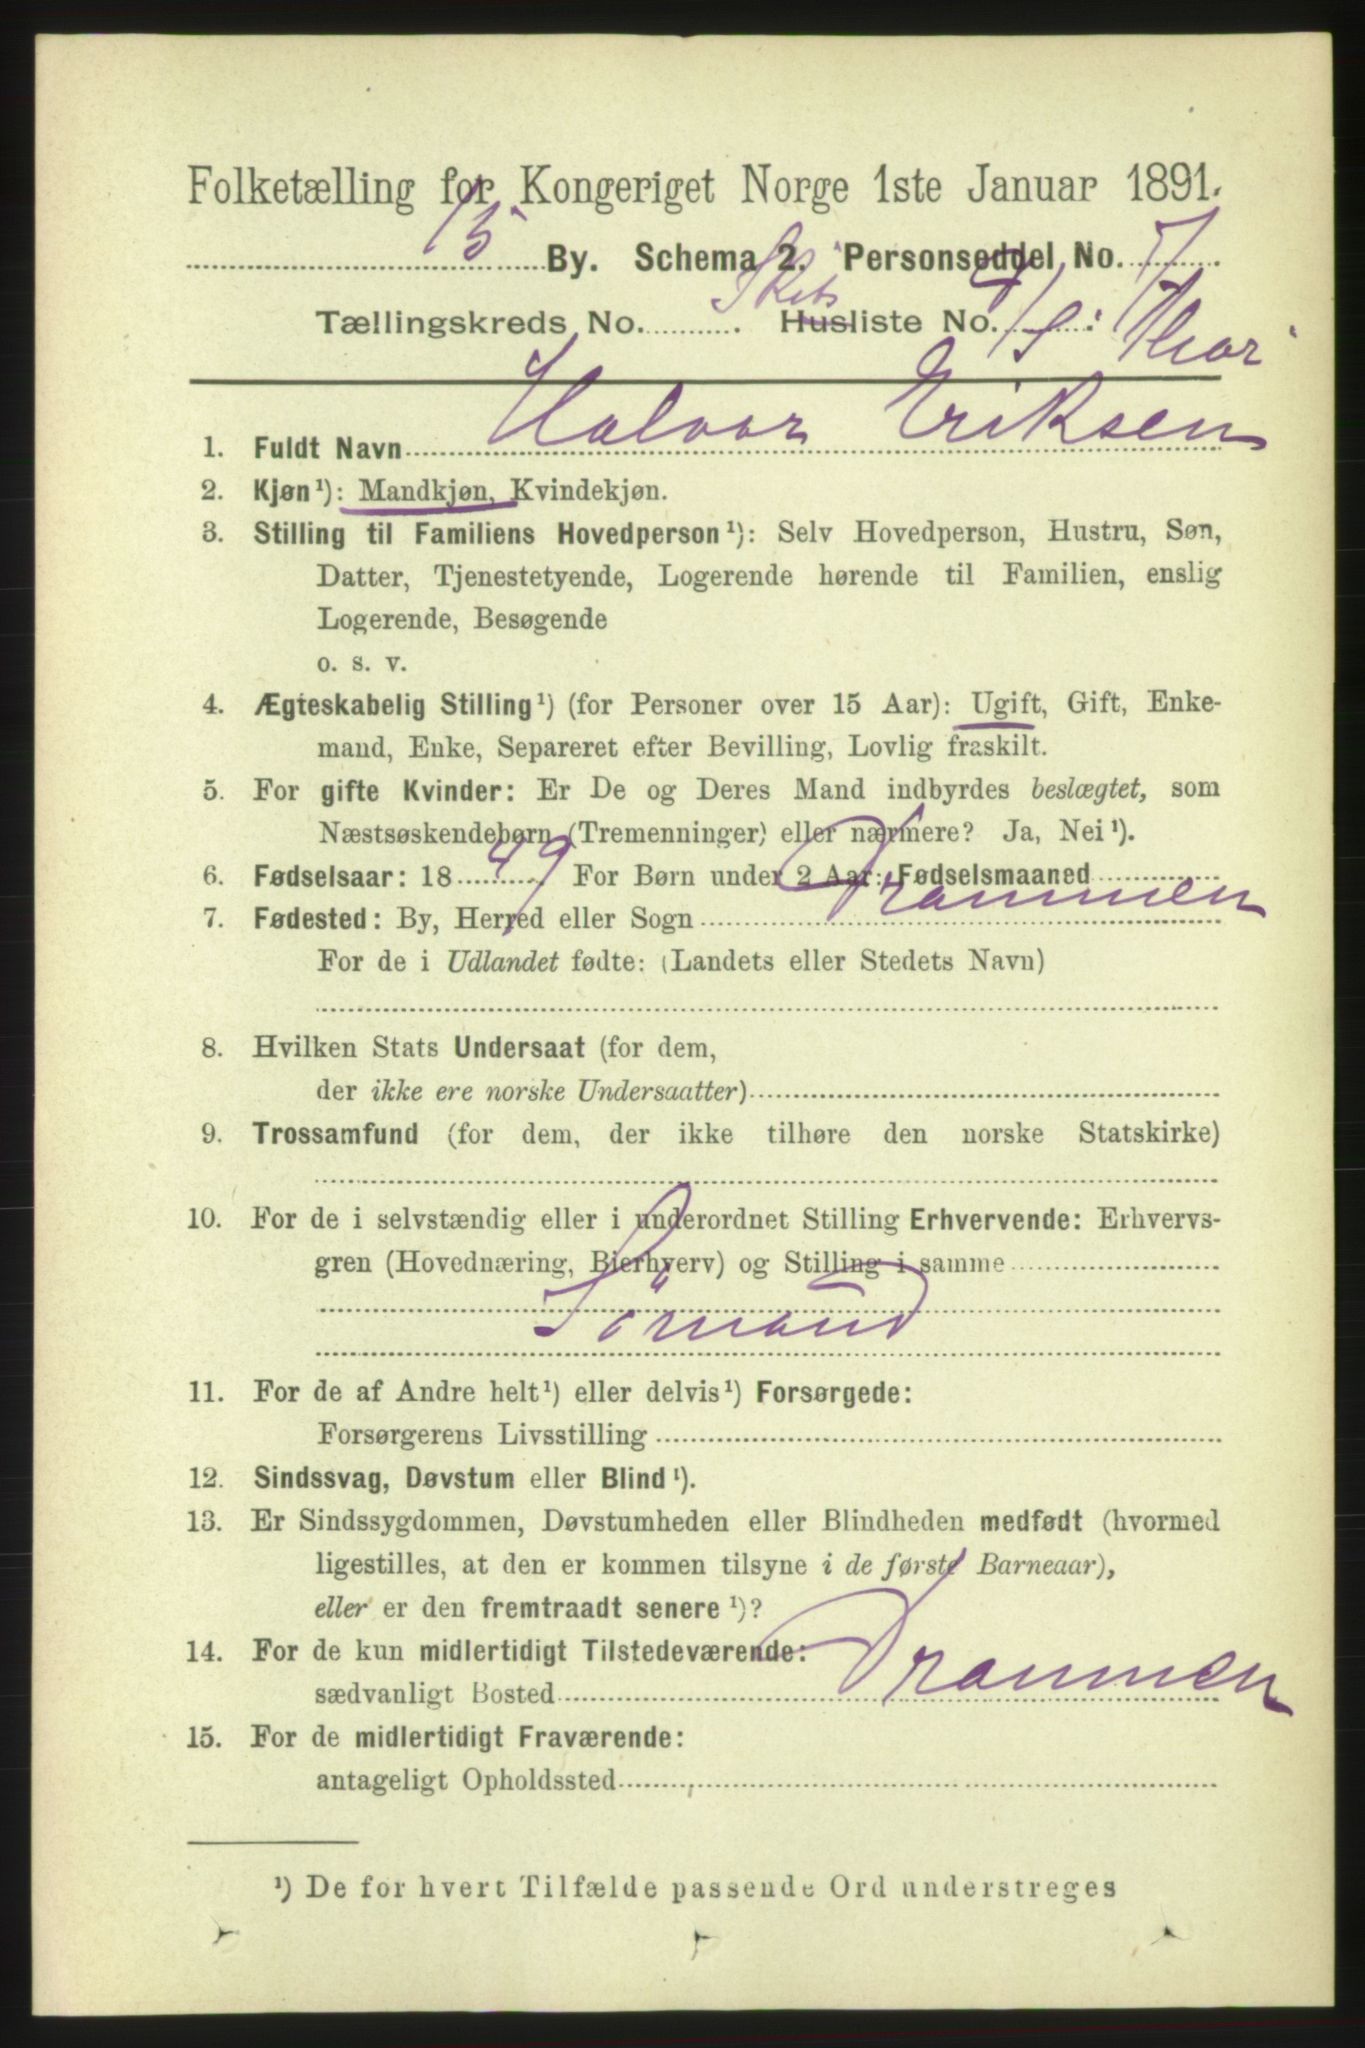 Folketælling for Kongeriget Norge 1ste Januar 1891.
15 By. Schema 2. Personseddel No. 7
Tællingskreds No. Skibs Husliste No. 4 S/S: Thor
1. Fuldt Navn Halvor Eriksen
2. Kjøn¹): Mandkjøn, Kvindekjøn.
3. Stilling til Familiens Hovedperson¹): Selv Hovedperson, Hustru, Søn,
Datter, Tjenestetyende, Logerende hørende til Familien, enslig
Logerende, Besøgende
o. s. v.
4. Ægteskabelig Stilling¹) (for Personer over 15 Aar): Ugift, Gift, Enke-
mand, Enke, Separeret efter Bevilling, Lovlig fraskilt.
5. For gifte Kvinder: Er De og Deres Mand indbyrdes beslægtet, som
Næstsøskendebørn (Tremenninger) eller nærmere? Ja, Nei¹).
6. Fødselsaar: 1849 For Børn under 2 Aar: Fødselsmaaned
7. Fødested: By, Herred eller Sogn Drammen
For de i Udlandet fødte: (Landets eller Stedets Navn)
8. Hvilken Stats Undersaat (for dem,
der ikke ere norske Undersaatter)
9. Trossamfund (for dem, der ikke tilhøre den norske Statskirke)
10. For de i selvstændig eller i underordnet Stilling Erhvervende: Erhvervs-
gren (Hovednæring, Bierhverv) og Stilling i samme
Sömand
11. For de af Andre helt¹) eller delvis¹) Forsørgede:
Forsørgerens Livsstilling
12. Sindssvag, Døvstum eller Blind¹).
13. Er Sindssygdommen, Døvstumheden eller Blindheden medfødt (hvormed
ligestilles, at den er kommen tilsyne i de første Barneaar),
eller er den fremtraadt senere¹)?
14. For de kun midlertidigt Tilstedeværende:
sædvanligt Bosted Drammen
15. For de midlertidigt Fraværende:
antageligt Opholdssted
¹) De for hvert Tilfælde passende Ord understreges